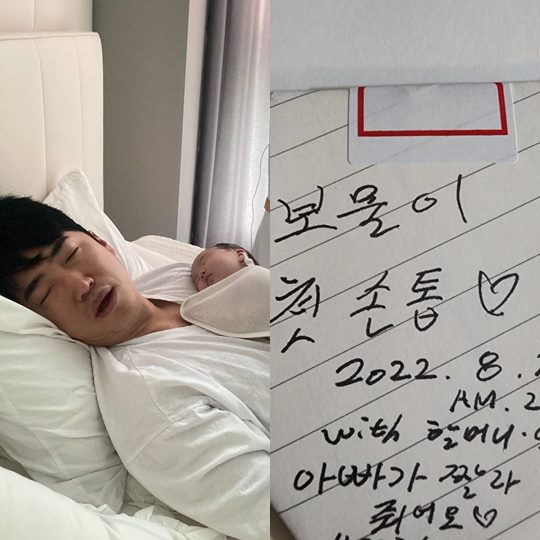 보물이
첫 손톱 ♡
2022. 8. 2
AM. 2
with 할머니.
아빠가 짤라
줘어요 ♡